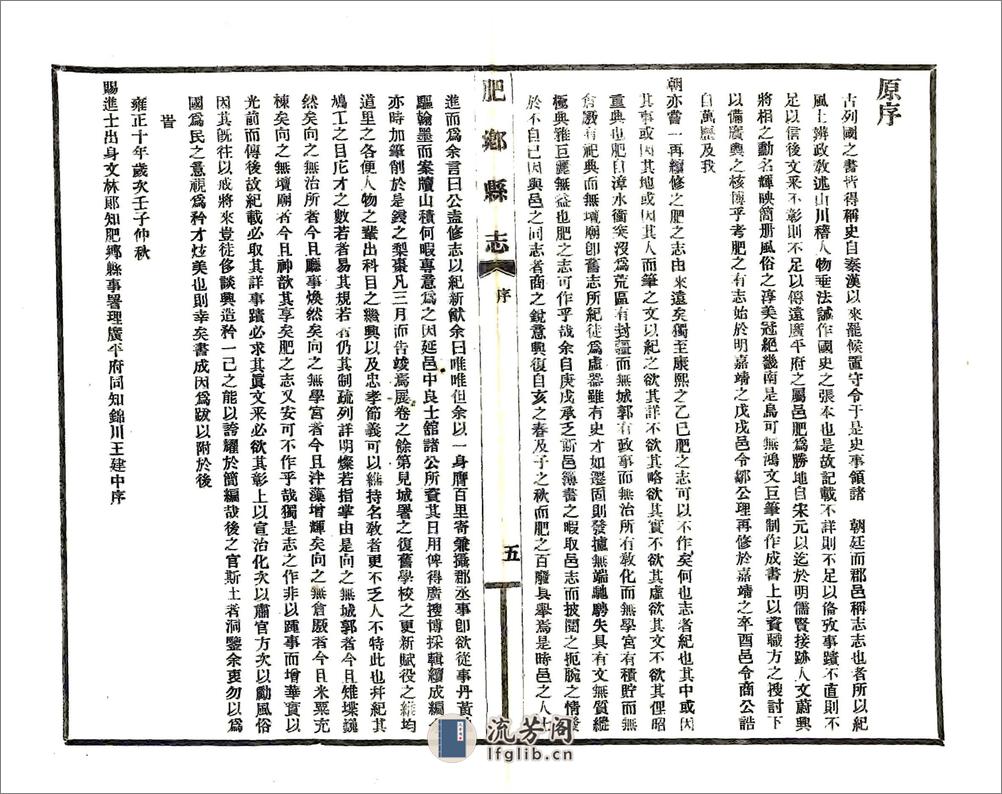 原序
古列國之書皆得稱史自秦漢以來罷候置守令于是史事領諸　朝廷而郡邑稱志志也者所以紀
風土辨政教述山川稽人物垂法誡作國史之張本也是故記載不詳則不足以俻攷事蹟不直則不
足以信後文采不彰則不足以傳遠廣平府之屬邑肥爲勝地自宋元以迄於明儒賢接跡人文蔚興
將相之勳名輝映簡册風俗之淳美冠絕畿南是烏可無鴻文巨筆制作成書上以資職方之搜討下
以備廣輿之核博乎考肥之有志始於明嘉靖之戊戌邑令鄒公理再修於嘉靖之辛酉邑令商公誥
自萬曆及我
朝亦嘗一再續修之肥之志由來遠矣獨至康熙之乙巳肥之志可以不作矣何也志者紀也其中或因
其事或因其地或因其人而筆之文以紀之欲其詳不欲其略欲其實不欲其虛欲其文不欲其俚昭
重典也肥自漳水衝突沒爲荒區有封疆而無城郭有政事而無治所有敎化而無學宮有積貯而無
倉厫有祀典而無壇廟卽舊志所紀徒爲虛器雖有史才如遷固則發攄無端馳騁失具有文無質縱
極典雅巨麗無益也肥之志可作乎哉余自庚戌承乏斯邑簿書之暇取邑志而披閱之扼腕之情發
於不自已因與邑之同志者商之銳意興復自亥之春及子之秋而肥之百廢具舉焉是時邑之人士
肥鄉縣志
序
五
進而爲余言曰公盍修志以紀新猷余曰唯唯但余以一身膺百里寄兼攝郡丞事卽欲從事丹黃
驅翰墨而案牘山積何暇專意爲之因延邑中良士舘諸公所資其日用俾得廣搜博採輯續成編
亦時加筆削於是鋟之梨棗凡三月而告竣焉展卷之餘第見城署之復舊學校之更新賦役之維均
道里之各便人物之輩出科目之繼興以及忠孝節義可以維持名敎者更不乏人不特此也幷紀其
鳩工之日庀才之數若者易其規若者仍其制疏列詳明燦若指掌由是向之無城郭者今且雉堞巍
然矣向之無治所者今且廳事煥然矣向之無學宮者今且泮藻增輝矣向之無倉厫者今且米粟充
棟矣向之無壇廟者今且神歆其享矣肥之志又安可不作乎哉獨是志之作非以踵事而增華實以
光前而傳後故紀載必取其詳事蹟必求其眞文釆必欲其彰上以宣治化次以肅官方次以勵風俗
因其旣往以戒將來豈徒侈談興造矜一己之能以誇耀於簡編哉後之官斯土者洞鑒余衷勿以爲
國爲民之意視爲矜才炫美也則幸矣書成因爲跋以附於後
旹
雍正十年歲次壬子仲秋
賜進士出身文林郎知肥鄉縣事署理廣平府同知錦川王建中序
流芳阁
lfglib.cn